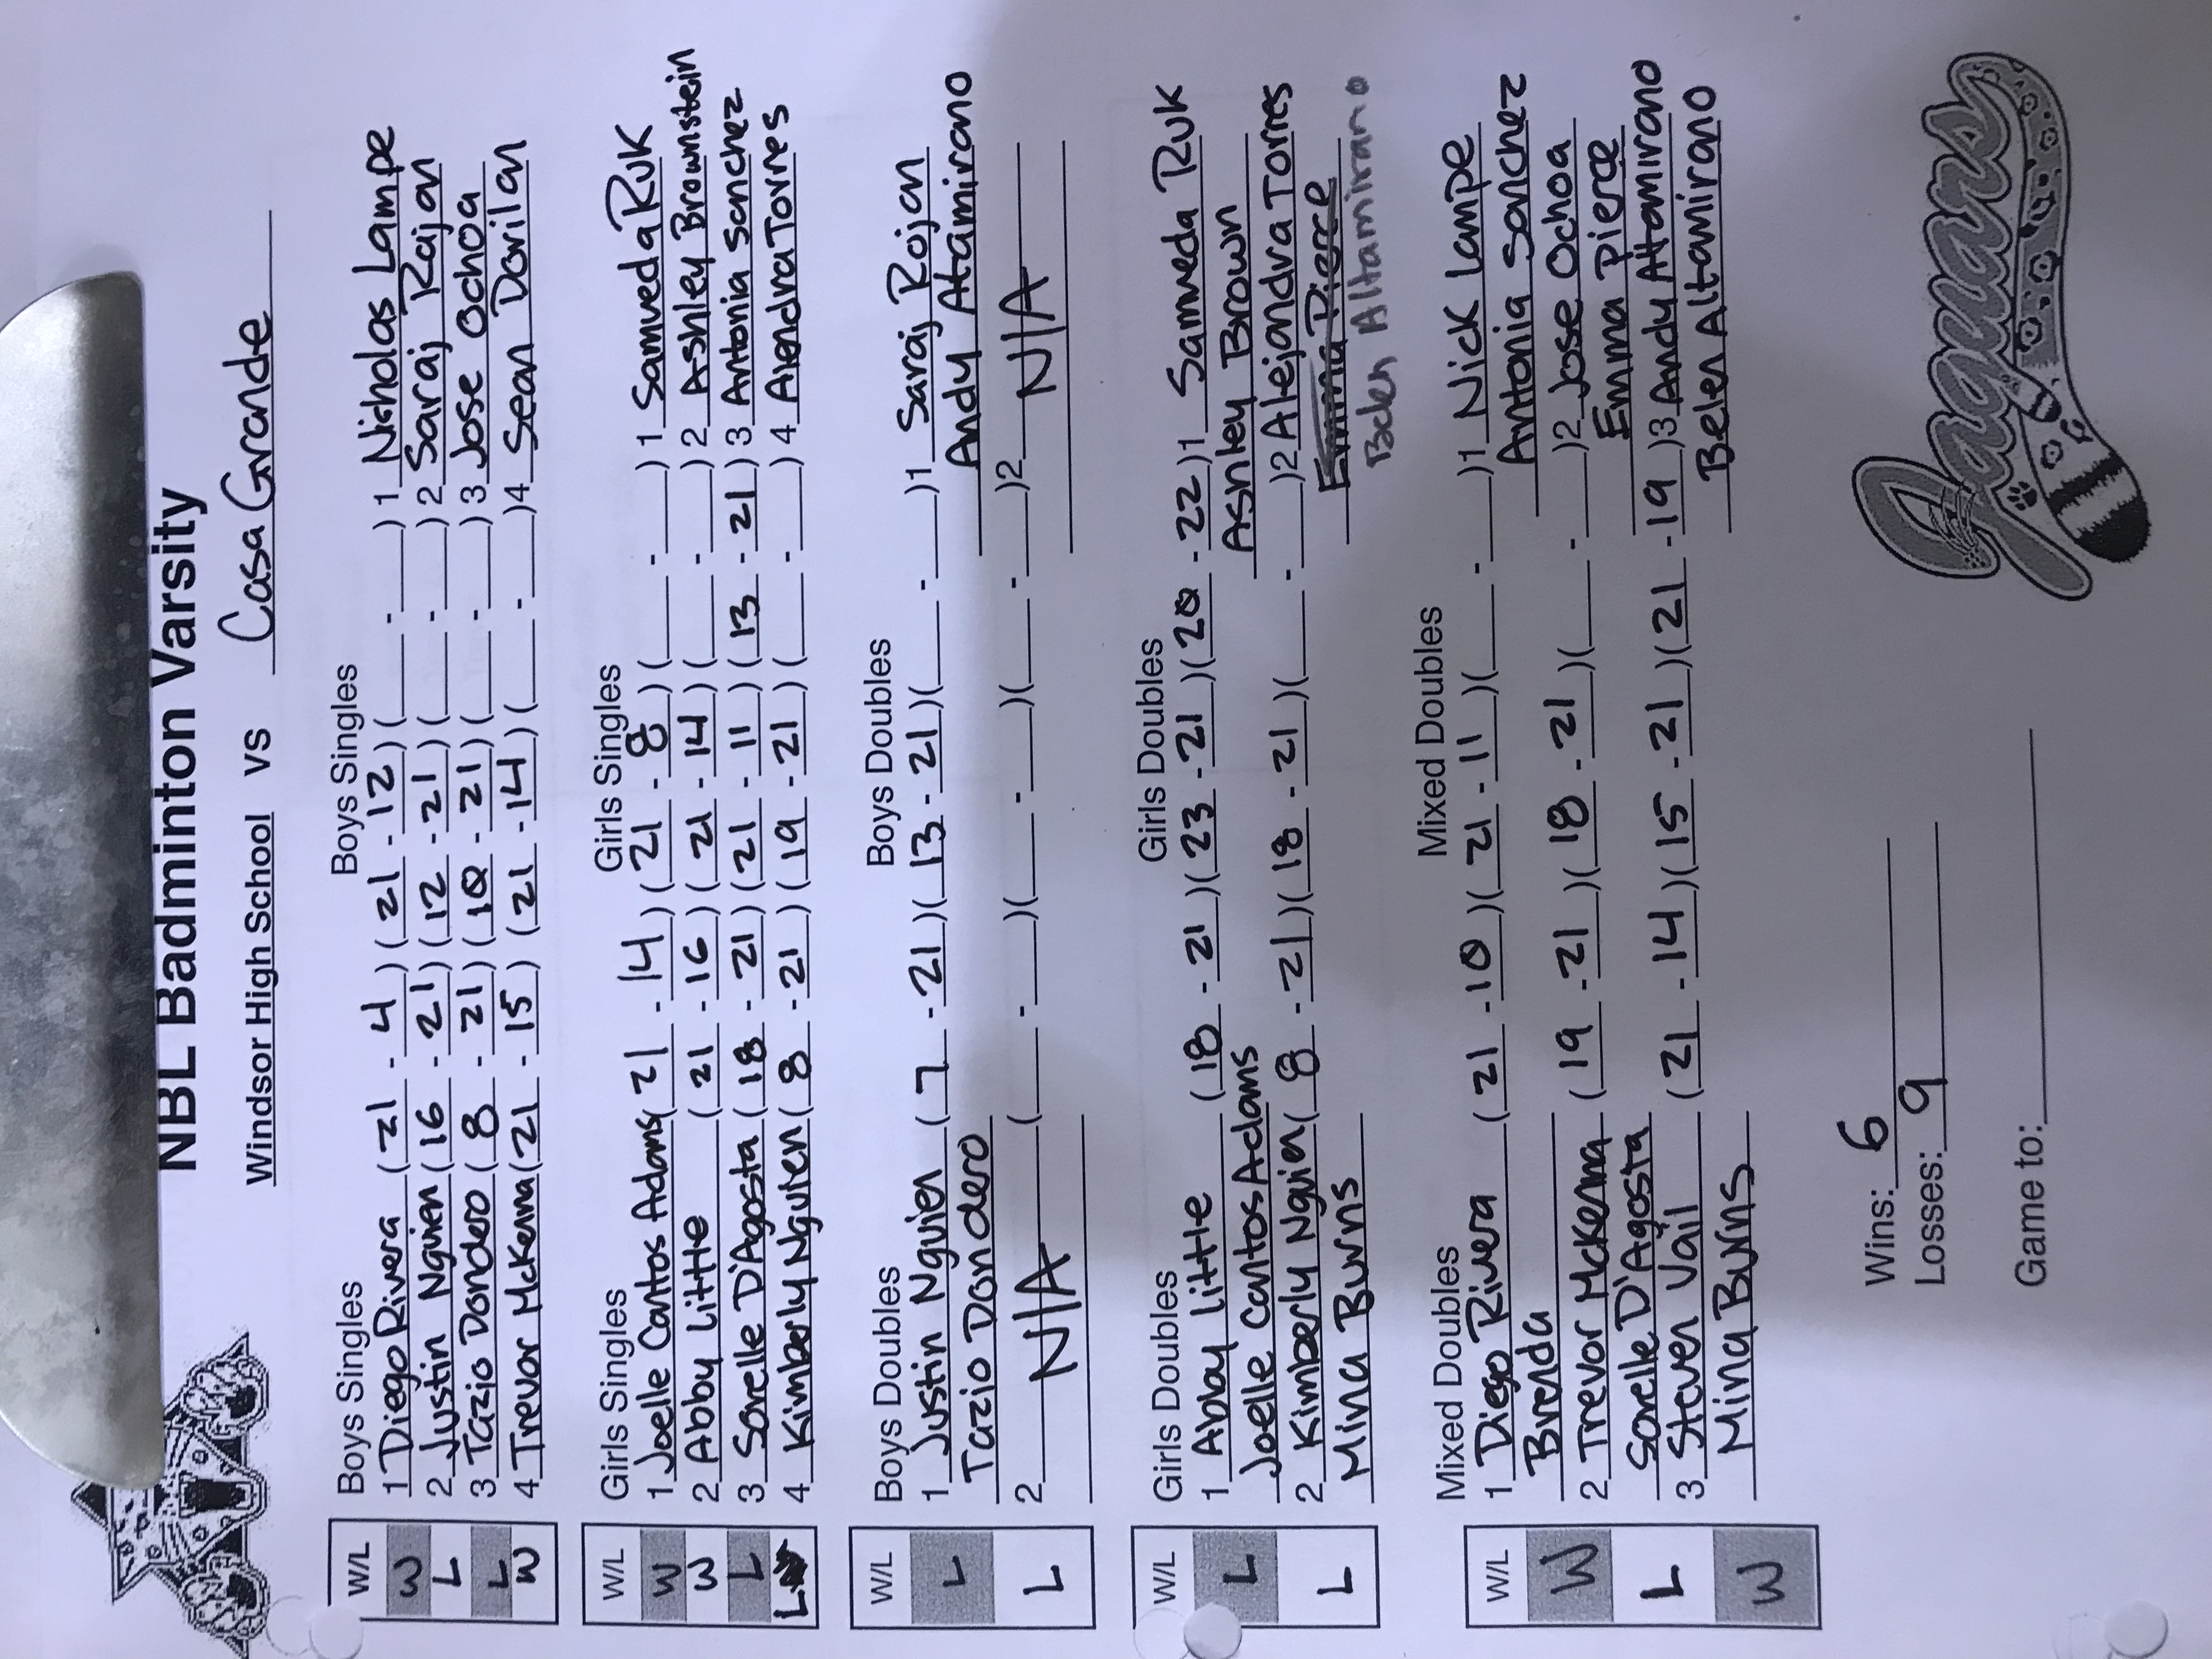 NBL Badminton Varsity
Windsor High School vs Casa Grande
W/L Boys Singles Boys Singles
W 1 Diego Rivera (21 - 4) (21 - 12) ( - ) 1 Nicholas Lampe
L 2 Justin Nguien (16 - 21) (12 - 21) ( - ) 2 Saraj Rajan
L 3 Tazio Dondero (8 - 21) (10 - 21) ( - ) 3 Jose Ochoa
W 4 Trevor McKenna (21 - 15) (21 - 14) ( - ) 4 Sean Darilan
W/L Girls Singles Girls Singles
W 1 Joelle Cantos Adams (21 - 14) (21 - 8) ( - ) 1 Samveda RUK
W 2 Abby Little (21 - 16) (21 - 14) ( - ) 2 Ashley Brownstein
L 3 Sorelle D'Agosta (18 - 21) (21 - 11) (13 - 21) 3 Antonia Sanchez
L 4 Kimberly Nguien (8 - 21) (19 - 21) ( - ) 4 AlendraTorres
W/L Boys Doubles Boys Doubles
L 1 Justin Nguien (7 - 21) (13 - 21) ( - ) 1 Saraj Rojan
Tazio Dondero Andy Atamirano
L 2 N/A ( - ) ( - ) ( - ) 2 N/A
W/L Girls Doubles Girls Doubles
L 1 Abby Little (18 - 21) (23 - 21) (20 - 22) 1 Samveda RUK
Joelle Cantos Adams Ashley Brown
L 2 Kimberly Nguien (8 - 21) (18 - 21) ( - ) 2 Alejandra Torres
Mina Burns Emma Pierce
Belen Altamirano
W/L Mixed Doubles Mixed Doubles
W 1 Diego Rivera (21 - 10) (21 - 11) ( - ) 1 Nick Lampe
Brenda Antonia Sanchez
L 2 Trevor McKenna (19 - 21) (18 - 21) ( - ) 2 Jose Ochoa
Sorelle D'Agosta Emma Pierce
W 3 Steven Vail (21 - 14) (15 - 21) (21 - 19) 3 Andy Altamirano
Mina Burns Belen Altamirano
Wins: 6
Losses: 9
Game to:
Jaguars